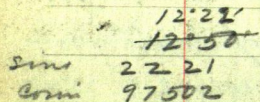 12°22'
12°50'
Sins 22 21
Cosin 97502